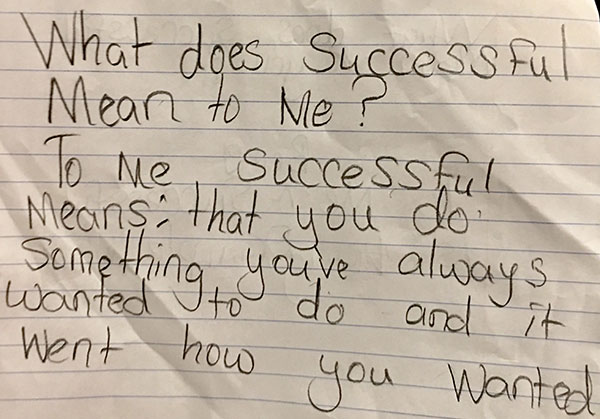 What does Successful
Mean to Me?
To Me Successful
Means: that you do
Something you've always
wanted to do and it
Went how you Wanted